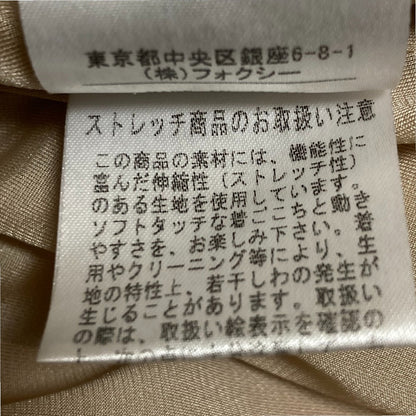 東京都中央区銀座6-8-1
(株)フォクシー
ストレッチ商品のお取扱い注意
この商品の素材には、機能性に
富んだ伸縮性(ストレッチ性)
のある生地を使用しています。
ソフトタッチな着ごこちと動き
やすさをお楽しみ下さい。着
用やクリーニング等により、生
地の特性上、若干しわの発生が
生じることがあります。取扱い
の際は、取扱い絵表示を確認の